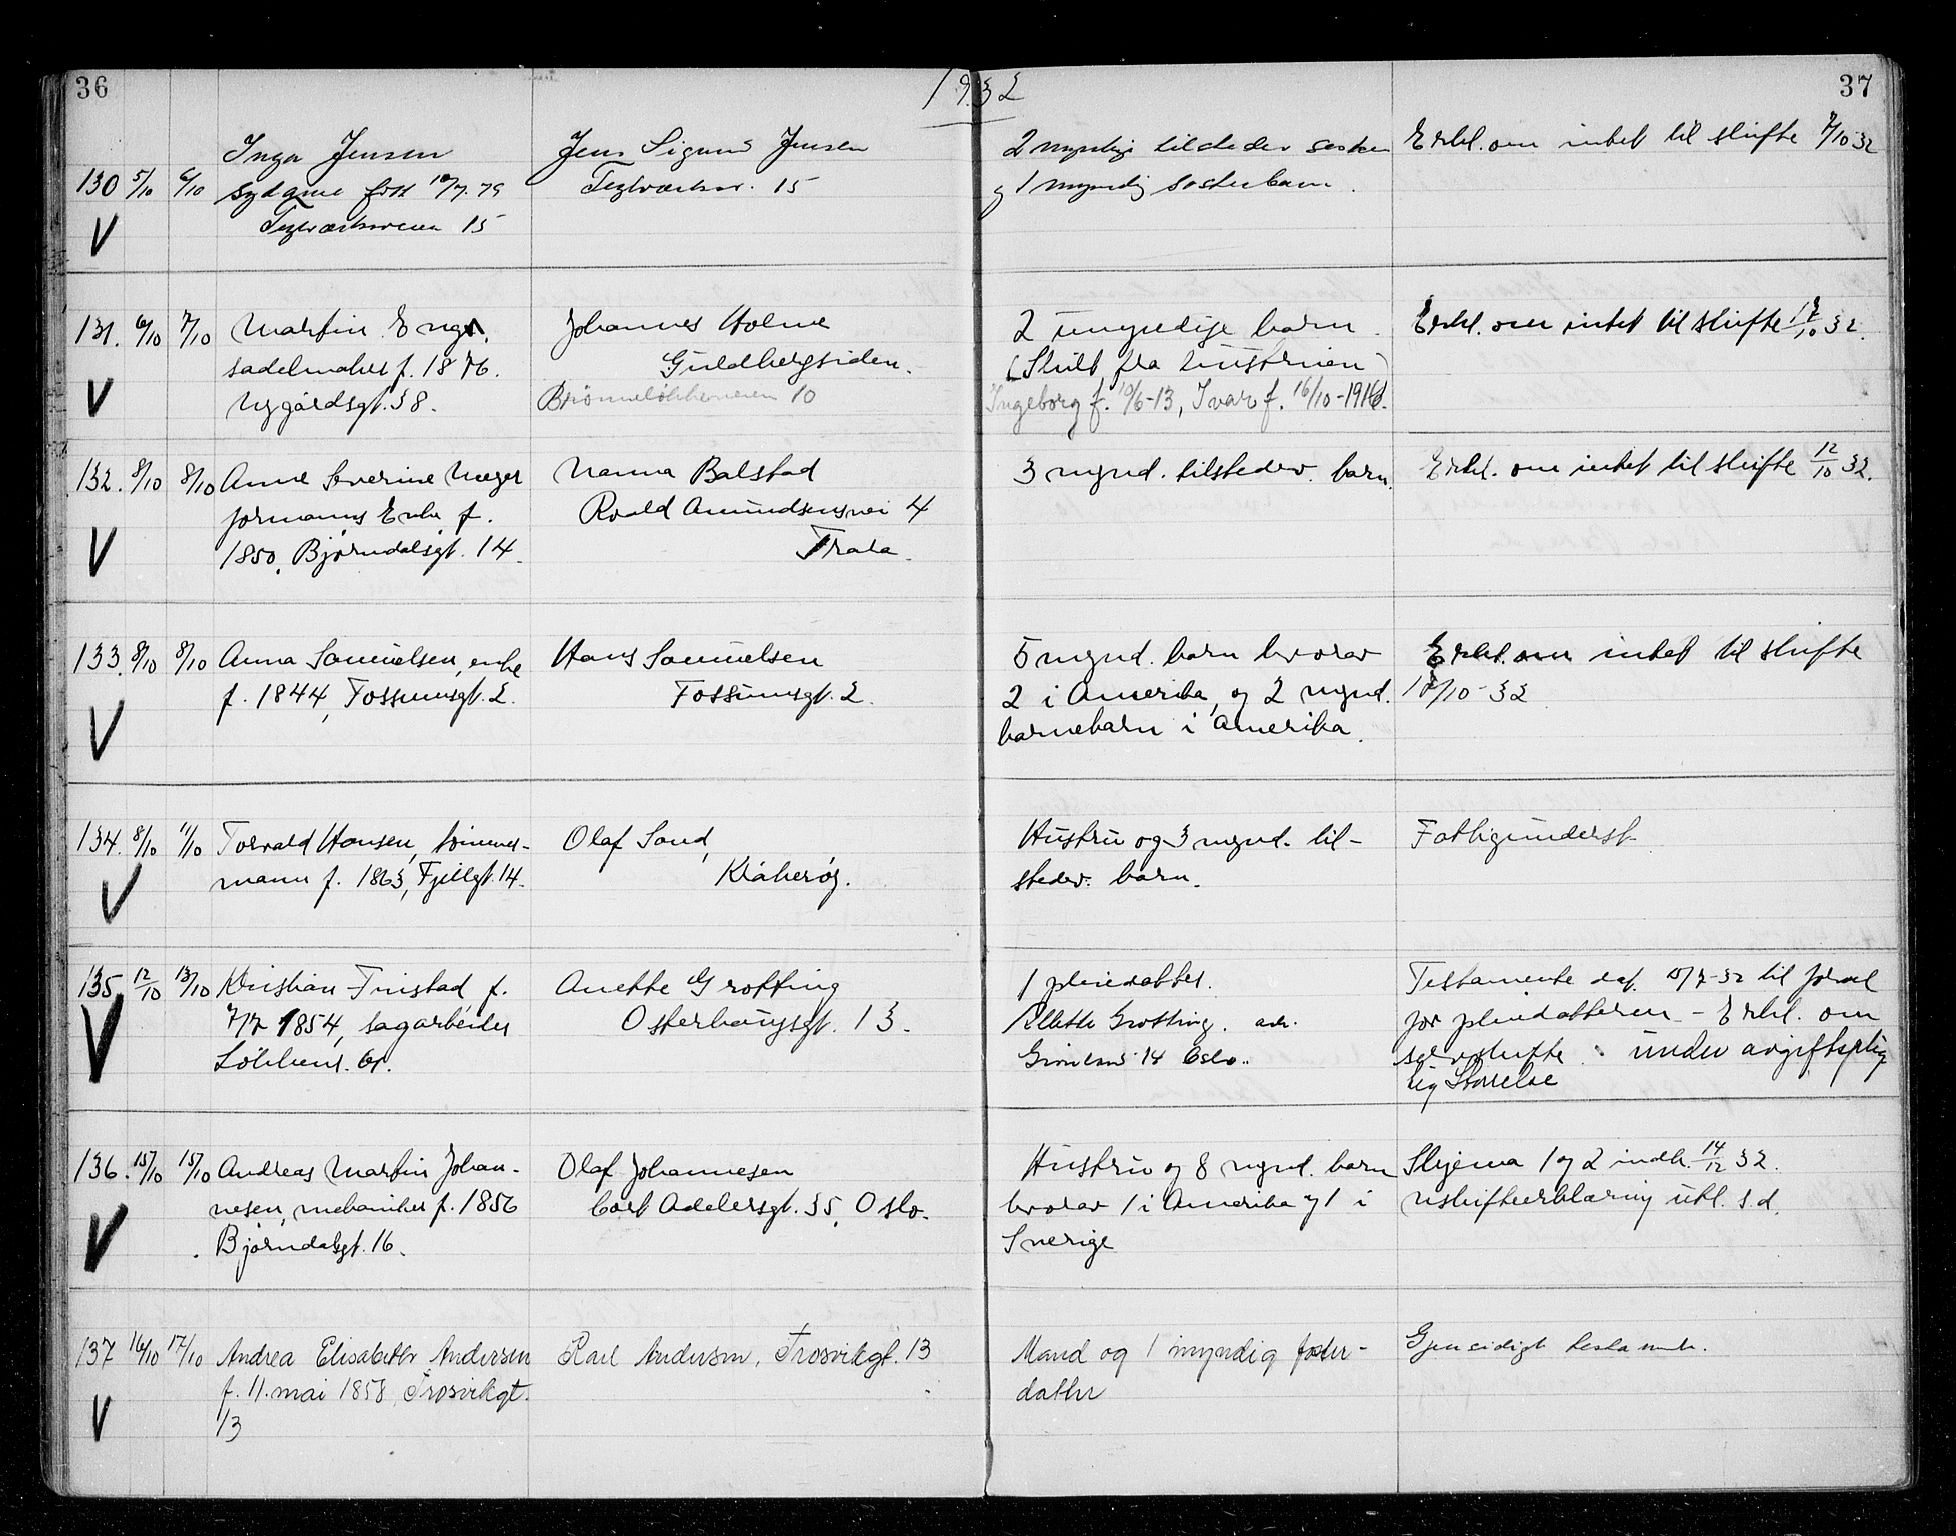 36
1932
37
130 5/10 6/10 Inga Jensen
sydame født 10/7.79
Teglverksveien 15
Jens Sigurd Jensen
Teglverksv. 15
2 myndige tilstedev søsken
og 1 myndig søsterbarn.
Erkl. om intet til skifte 7/10 32
131. 6/10 7/10 Martin Enger.
sadelmaker f. 1876.
Nygårdsgt. 38.
Johannes Holme
Guldbergsiden.
Brønneløkkeveien 10
2 umyndige barn.
(Skilt fra hustruen)
Ingeborg f. 10/6-13, Ivar f. 16/10-1916.
Erkl. om intet til skifte 32.
132. 8/10 8/10 Anne Severine Unger
formanns Enke f.
1850. Bjørndalsgt. 14.
Nanna Balstad
Roald Amundsensvei 4
Trara.
3 mynd. tilstedev. barn.
Erkl. om intet til skifte 12/10 32.
133. 8/10 8/10 Anna Samuelsen, enke
f. 1844, Fossumsgt. 2.
Hans Samuelsen
Fossumsgt. 2.
5 mynd. barn hvorav
2 i Amerika, og 2 mynd.
barnebarn i Amerika.
Erkl. om intet til skifte
/10-32
134. 8/10 11/10 Torvald Hansen, tømmer-
mann f. 1863, Fjellgt. 14.
Olaf Sand,
Kråkerøy.
Hustru og 3 mynd. til-
stedev. barn.
Fattigunderst.
135 12/10 13/10 Kristian Finstad f.
7/7 1854, sagarbeider
Løkkens Gt.
Anette Grøtting
Østerhaugsgt. 13.
1 pleiedatter.
Grøtting. adr.
Grønland 14 Oslo.
Testamente daf. /7-32 til
for pleiedatteren - Erkl. om
selvskifte. under avgiftsplig
tig Størrelse
136. 15/10 15/10 Andreas Martin Johan-
nesen, mekaniker f. 1856
Bjørndalsgt. 16.
Olaf Johannesen
Cort Adelersgt. 35, Oslo.
Hustru og 8 mynd. barn
hvorav 1 i Amerika og 1 i
Sverige
Skjema 1 og 2 indk. 14/12 32.
uskifteerklæring utl. s.d.
137 16/10 17/10 Andrea Elisabeth Andersen
f. 11. mai 1858, Trosvikgt.
13
Karl Andersen, Trosvikgt. 13
Mand og 1 myndig foster-
datter
Gjensidigt testamente.